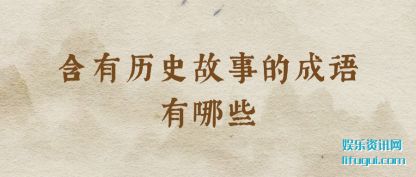 含有历史故事的成语
有哪些
娱乐资讯网
lifugui.com